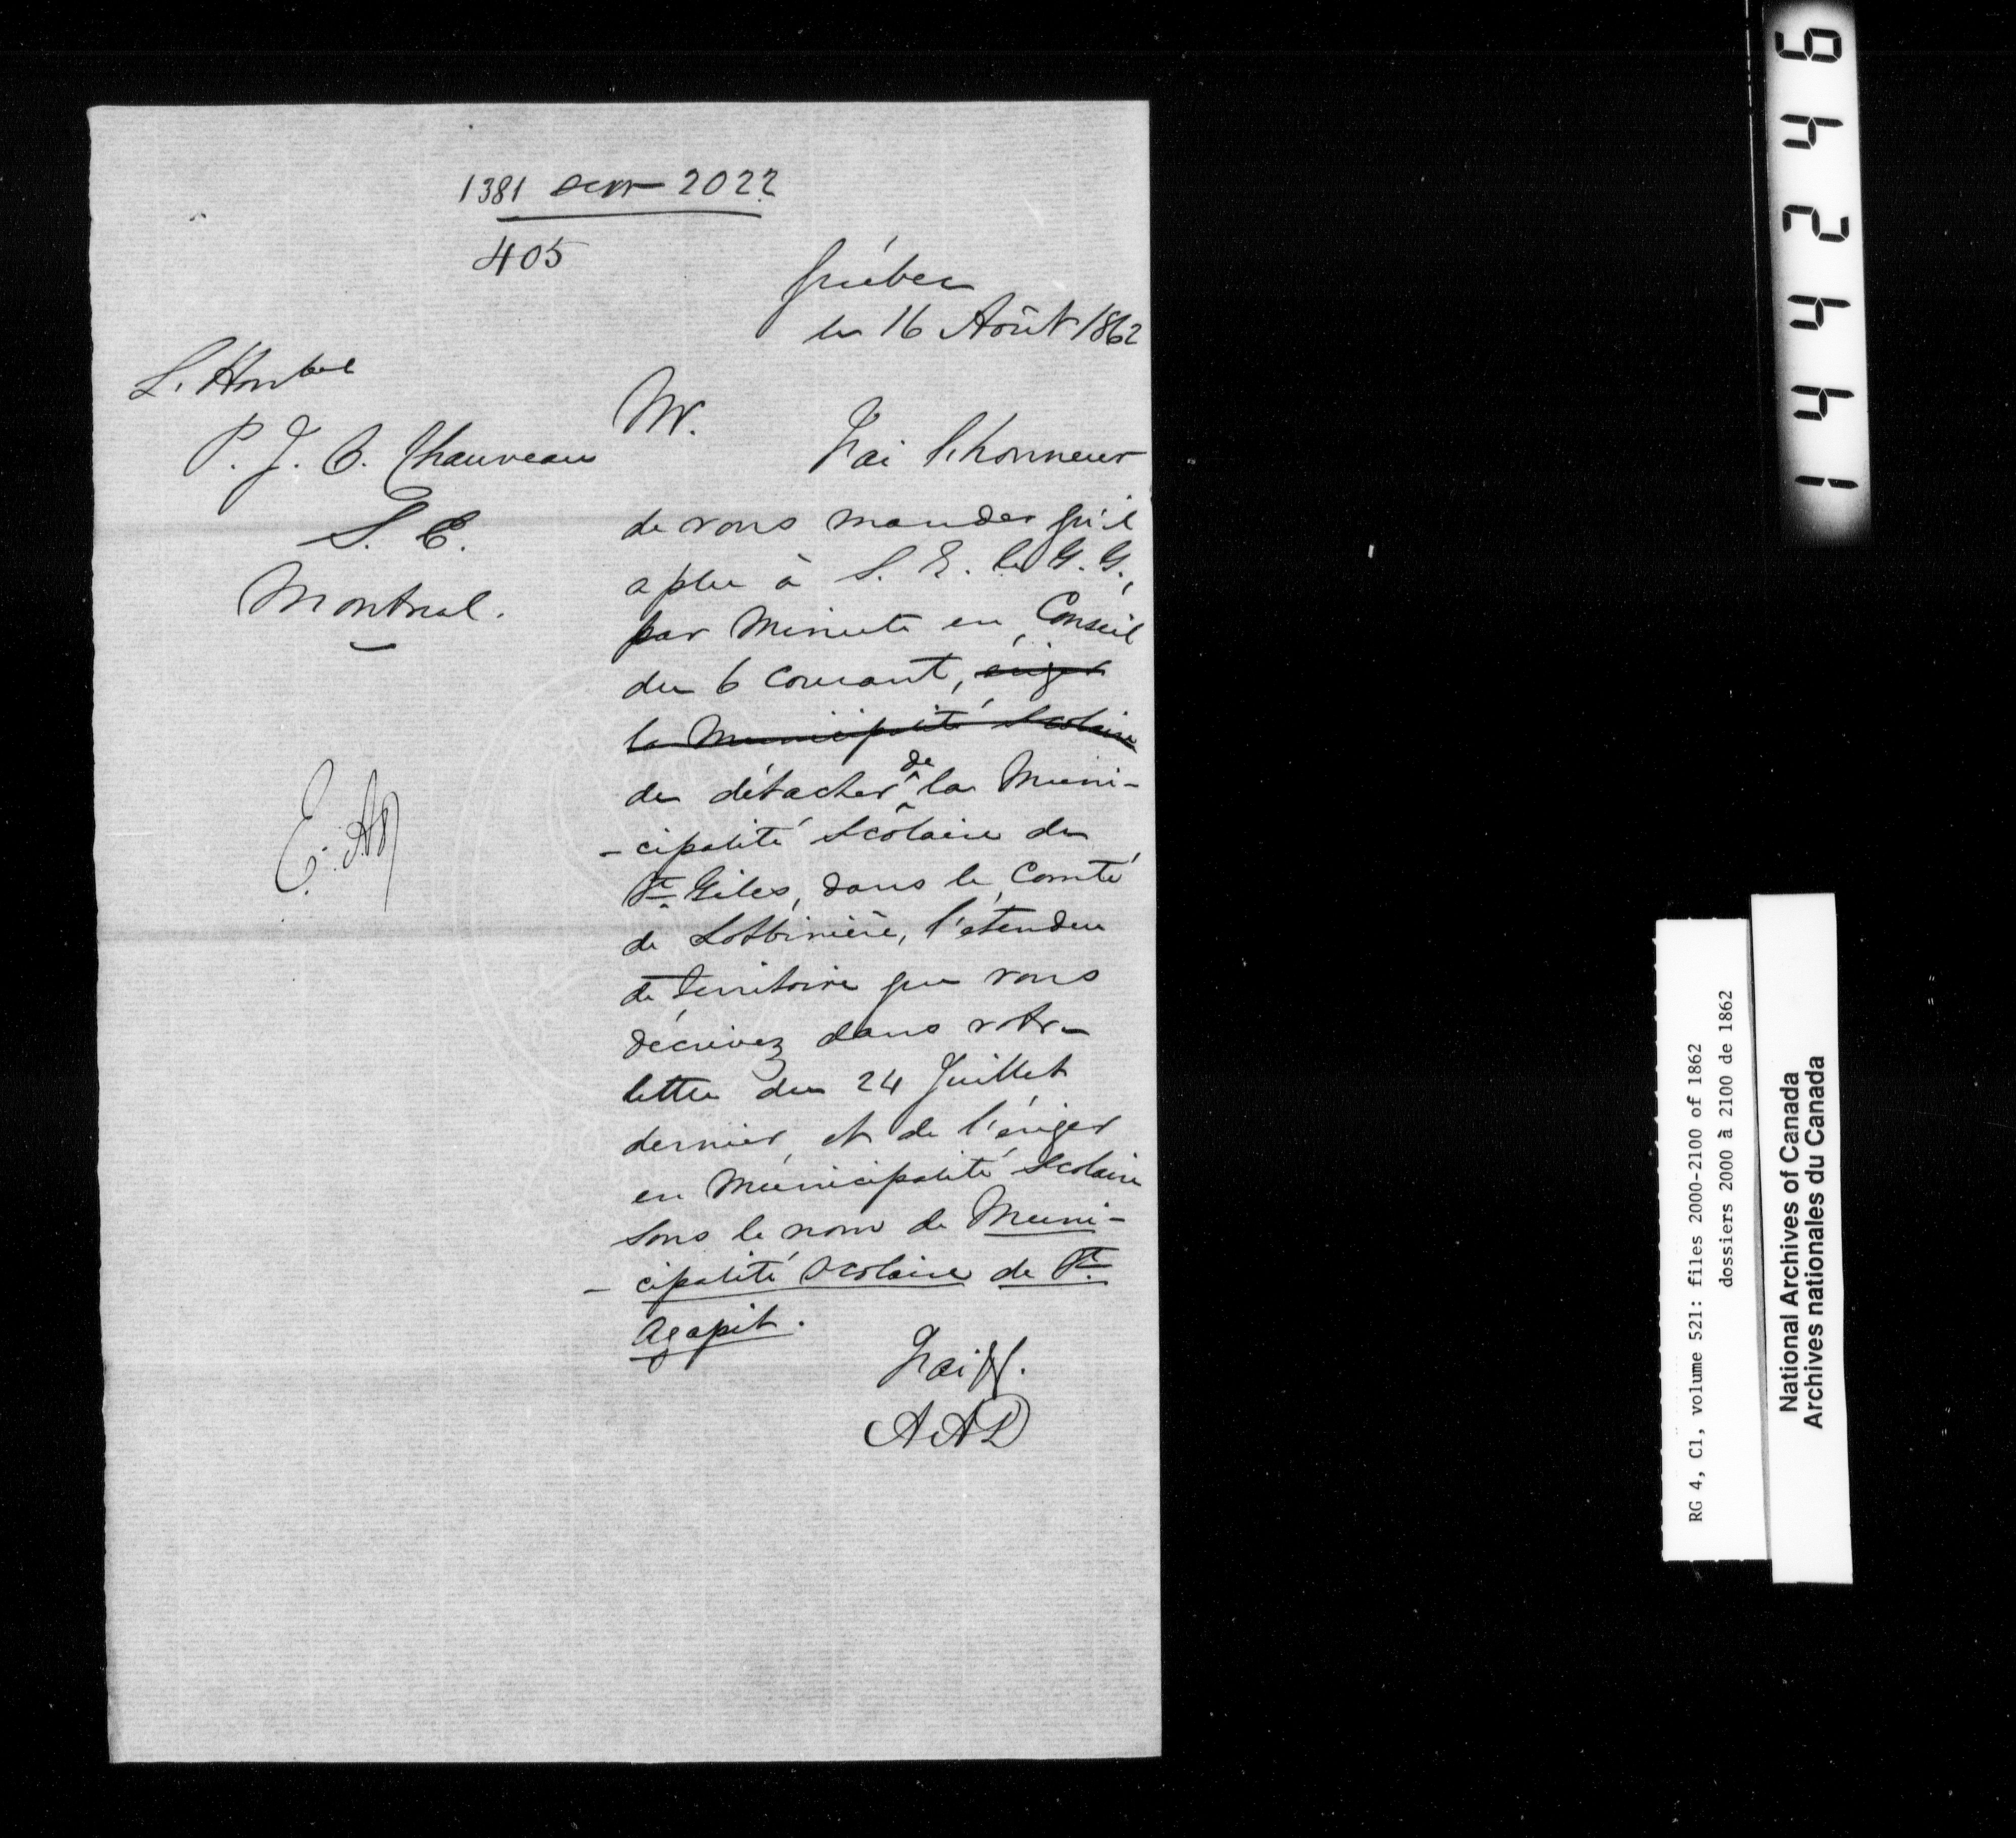 1381 2022
405
Québec
le 16 Août 1862
L'Honble
P. J. O. Chauveau
S. E.
Montreal.
Mr.
J'ai l'honneur
de vous mander qu'il
a plu à S. E. le G. G.,
par Minute en Conseil
du 6 Courant, ériger
la Municipalité Scolaire
de détacher de la Muni-
-cipalité Scolaire de
St. Giles, dans le Comté
de Lotbinière, l'étendue
de territoire que vous
décrivez dans votre
lettre du 24 Juillet
dernier, et de l'ériger
en Municipalité Scolaire
sous le nom de Muni-
-cipalité Scolaire de St.
Agapit.
J'ai
AAD
144246
RG 4, C1, volume 521: files 2000-2100 of 1862
dossiers 2000 à 2100 de 1862
National Archives of Canada
Archives nationales du Canada